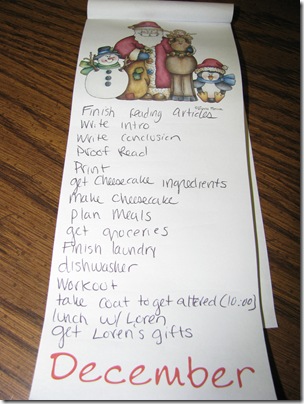 Finish reading articles
Write intro
Write conclusion
Proof Read
Print
get Cheesecake ingredients
make cheesecake
plan meals
get groceries
Finish laundry
dishwasher
Workout
take coat to get altered (10:00)
lunch w/ Loren
get Loren's gifts
December